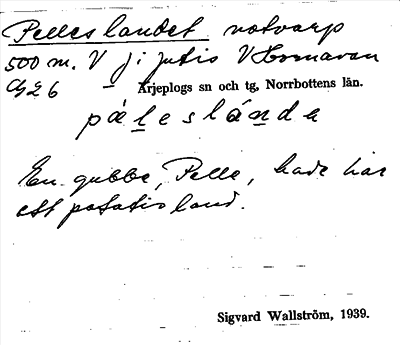 Pelleslandet notvarp
500 m. V j i jutis V Hornavan
G 2 6 – Arjeplogs sn och tg, Norrbottens län.
pàleslándə
En gubbe, Pelle, hade här
ett potatisland.
Sigvard Wallström, 1939.